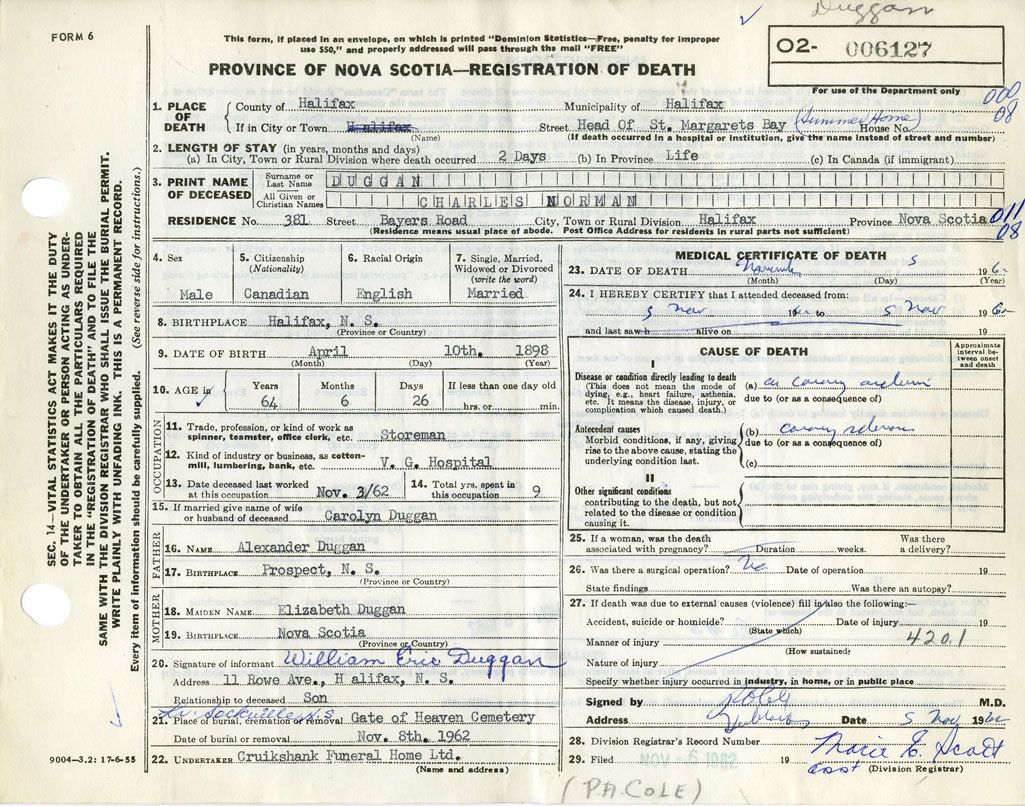 Duggan
FORM 6
This form, if placed in an envelope, on which is printed "Dominion Statistics—Free, penalty for improper
use $50," and properly addressed will pass through the mail "FREE"
02- 006127
PROVINCE OF NOVA SCOTIA—REGISTRATION OF DEATH
For use of the Department only
000
08
1. PLACE OF DEATH
County of Halifax Municipality of Halifax
If in City or Town Halifax Street Head Of St. Margarets Bay (Summer Home) House No.
(Name) (If death occurred in a hospital or institution, give the name instead of street and number)
2. LENGTH OF STAY (in years, months and days)
(a) In City, Town or Rural Division where death occurred 2 Days (b) In Province Life (c) In Canada (if immigrant)
3. PRINT NAME OF DECEASED
Surname or Last Name DUGGAN
All Given or Christian Names CHARLES NORMAN
RESIDENCE No. 381 Street Bayers Road City, Town or Rural Division Halifax Province Nova Scotia
011
08
(Residence means usual place of abode. Post Office Address for residents in rural parts not sufficient)
4. Sex
Male
5. Citizenship
(Nationality)
Canadian
6. Racial Origin
English
7. Single, Married,
Widowed or Divorced
(write the word)
Married
8. BIRTHPLACE Halifax, N. S.
(Province or Country)
9. DATE OF BIRTH April 10th. 1898
(Month) (Day) (Year)
10. AGE in
Years Months Days If less than one day old
64 6 26 hrs. or min.
OCCUPATION
11. Trade, profession, or kind of work as
spinner, teamster, office clerk, etc. Storeman
12. Kind of industry or business, as cotton-
mill, lumbering, bank, etc. V. G. Hospital
13. Date deceased last worked
at this occupation Nov. 3/62
14. Total yrs. spent in
this occupation 9
15. If married give name of wife
or husband of deceased Carolyn Duggan
FATHER
16. NAME Alexander Duggan
17. BIRTHPLACE Prospect, N. S.
(Province or Country)
MOTHER
18. MAIDEN NAME Elizabeth Duggan
19. BIRTHPLACE Nova Scotia
(Province or Country)
20. Signature of informant William Eric Duggan
Address 11 Rowe Ave., H alifax, N. S.
Relationship to deceased Son
Lr. Sackville N.S.
21. Place of burial, cremation or removal Gate of Heaven Cemetery
Date of burial or removal Nov. 8th. 1962
22. UNDERTAKER Cruikshank Funeral Home Ltd.
(Name and address)
MEDICAL CERTIFICATE OF DEATH
23. DATE OF DEATH November 5 196
(Month) (Day) (Year)
24. I HEREBY CERTIFY that I attended deceased from:
5 Nov 19 to 5 Nov 1962
and last saw h alive on 19
CAUSE OF DEATH
Approximate
interval be-
tween onset
and death
I
Disease or condition directly leading to death
(This does not mean the mode of
dying, e.g., heart failure, asthenia,
etc. It means the disease, injury, or
complication which caused death.)
(a)
due to (or as a consequence of)
Antecedent causes
Morbid conditions, if any, giving
rise to the above cause, stating the
underlying condition last.
(b)
due to (or as a consequence of)
(c)
II
Other significant conditions
contributing to the death, but not
related to the disease or condition
causing it.
25. If a woman, was the death
associated with pregnancy? Duration weeks. Was there
a delivery?
26. Was there a surgical operation? No Date of operation 19
State findings Was there an autopsy?
27. If death was due to external causes (violence) fill in also the following:—
Accident, suicide or homicide? Date of injury 19
(State which)
Manner of injury 420.1
(How sustained)
Nature of injury
Specify whether injury occurred in industry, in home, or in public place
Signed by M.D.
Address Date 5 Nov 1962
28. Division Registrar's Record Number
29. Filed NOV -6 1962 19 Marie E. Scott
asst (Division Registrar)
(P.A. COLE)
SEC. 14—VITAL STATISTICS ACT MAKES IT THE DUTY
OF THE UNDERTAKER OR PERSON ACTING AS UNDER-
TAKER TO OBTAIN ALL THE PARTICULARS REQUIRED
IN THE "REGISTRATION OF DEATH" AND TO FILE THE
SAME WITH THE DIVISION REGISTRAR WHO SHALL ISSUE THE BURIAL PERMIT.
WRITE PLAINLY WITH UNFADING INK. THIS IS A PERMANENT RECORD.
Every item of information should be carefully supplied. (See reverse side for instructions.)
9004—3.2: 17-6-55